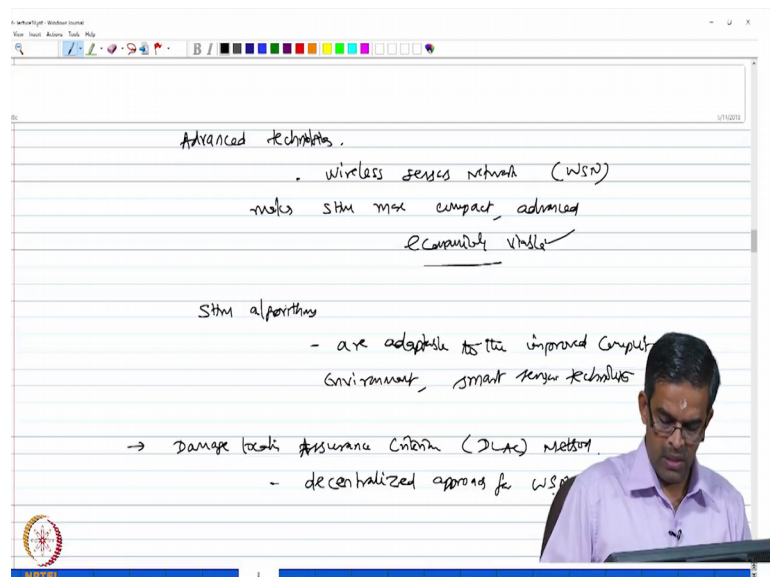 Windows Journal
View Insert Actions Tools Help
B I
5/11/2018
Advanced technologies.
. Wireless sensors network (WSN)
makes SHM more compact, advanced
economically viable
SHM algorithms
- are adaptable to the improved
environment, smart sensor
→ Damage Assurance Criterion (DLAC) Method.
- decentralized approach for
NPTEL